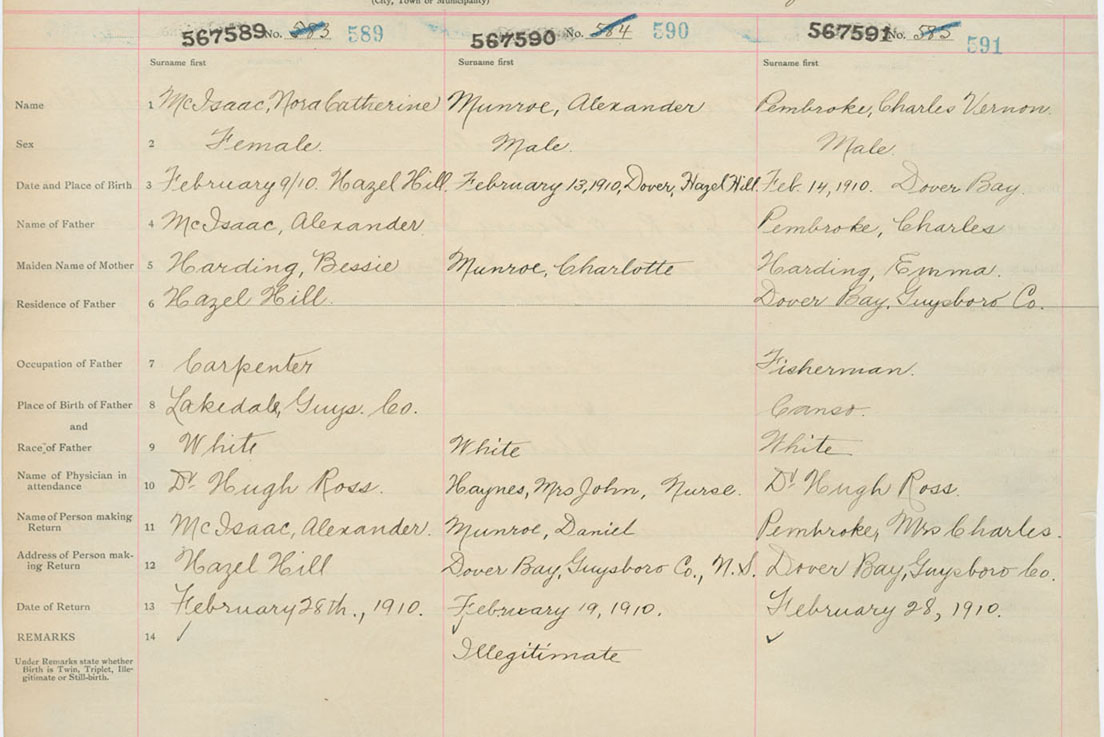 (City, Town or Municipality)
567589 No. 583 589 567590 No. 584 590 567591 No. 585 591
Surname first Surname first Surname first
Name 1 McIsaac, Nora Catherine Munroe, Alexander Pembroke, Charles Vernon.
Sex 2 Female. Male. Male.
Date and Place of Birth 3 February 9/10. Hazel Hill. February 13, 1910, Dover, Hazel Hill. Feb. 14, 1910. Dover Bay.
Name of Father 4 McIsaac, Alexander Pembroke, Charles
Maiden Name of Mother 5 Harding, Bessie Munroe, Charlotte Harding, Emma.
Residence of Father 6 Hazel Hill. Dover Bay, Guysboro Co.
Occupation of Father 7 Carpenter Fisherman.
Place of Birth of Father 8 Lakedale, Guys. Co. Canso.
and
Race of Father 9 White White White
Name of Physician in
attendance 10 Dr Hugh Ross. Haynes, Mrs John, Nurse. Dr Hugh Ross.
Name of Person making
Return 11 McIsaac, Alexander. Munroe, Daniel Pembroke, Mrs Charles.
Address of Person mak-
ing Return 12 Hazel Hill Dover Bay, Guysboro Co., N.S. Dover Bay, Guysboro Co.
Date of Return 13 February 28th., 1910. February 19, 1910. February 28, 1910.
REMARKS 14 ✓ ✓
Under Remarks state whether
Birth is Twin, Triplet, Ille-
gitimate or Still-birth.
Illegitimate